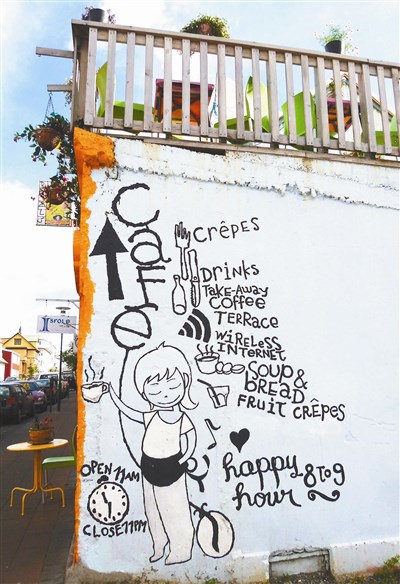 Café
CRÊPES
DRINKS
TAKE-AWAY
COFFEE
TERRACE
WiRELESS
INTERNET
SOUP &
BREAD
FRUIT CRÊPES
happy 8 TO 9
hour
OPEN 11AM
CLOSE 11PM